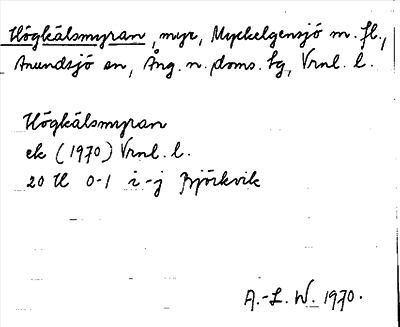 Högkälsmyran, myr, Myckelgensjö m. fl.,
Anundsjö sn, Ång. n. doms. tg, Vrnl. l.
Högkälsmyran
ek (1970) Vrnl. l.
20 H 0-1 i-j Björkvik
A.-L. W. 1970.